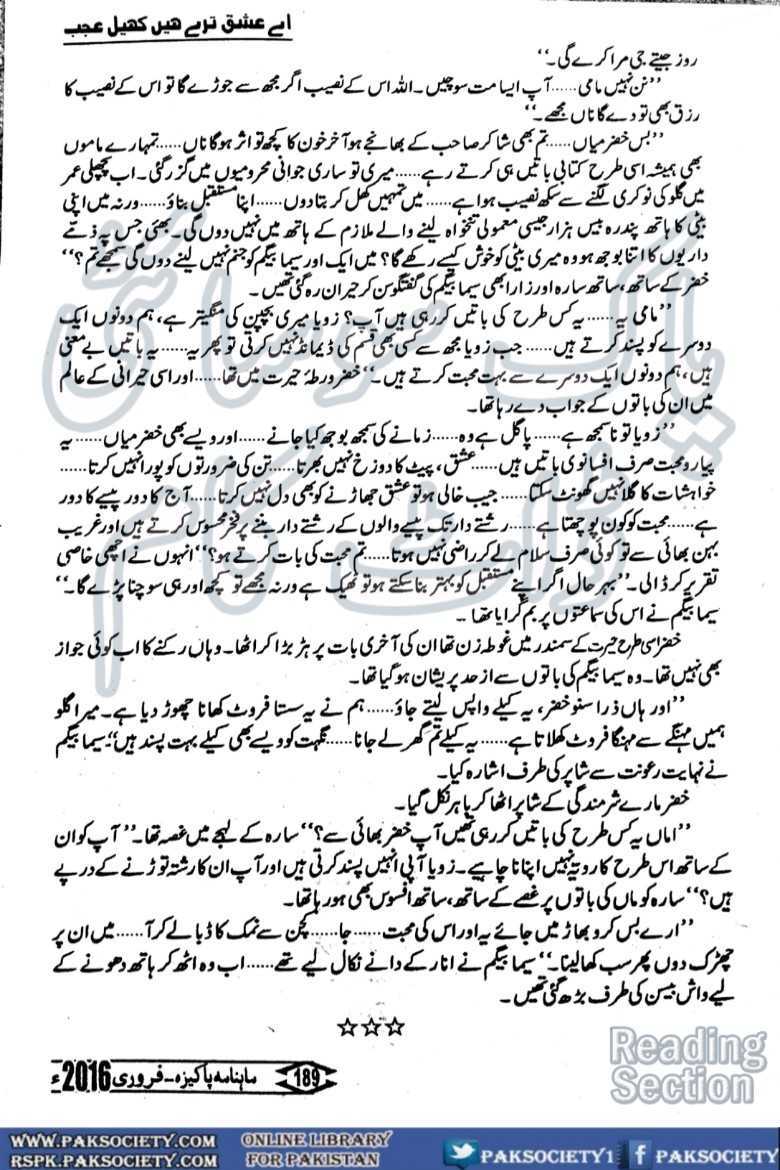 اے عشق ترے ھیں کھیل عجب
روز جیتے جی مرا کرے گی۔‘‘
’’نن نہیں مامی......آپ ایسا مت سوچیں۔ اللہ اس کے نصیب اگر مجھ سے جوڑے گا تو اس کے نصیب کا
رزق بھی تو دے گا ناں مجھے۔‘‘
’’بس خضر میاں......تم بھی شاکر صاحب کے بھانجے ہو آخر خون کا کچھ تو اثر ہوگا ناں.....تمہارے ماموں
بھی ہمیشہ اسی طرح کتابی باتیں ہی کرتے رہے......میری تو ساری جوانی محرومیوں میں گزر گئی۔ اب پچھلی عمر
میں گلو کی نوکری لگنے سے سکھ نصیب ہوا ہے......میں تمہیں کھل کر بتا دوں......اپنا مستقبل بناؤ......ورنہ میں اپنی
بیٹی کا ہاتھ پندرہ بیس ہزار جیسی معمولی تنخواہ لینے والے ملازم کے ہاتھ میں نہیں دوں گی۔ بھئی جس پہ ذمّے
داریوں کا اتنا بوجھ ہو وہ میری بیٹی کو خوش کیسے رکھے گا؟ میں ایک اور سیما بیگم کو جنم نہیں لینے دوں گی سمجھے تم؟‘‘
خضر کے ساتھ، ساتھ سارہ اور زارا بھی سیما بیگم کی گفتگو سن کر حیران رہ گئی تھیں۔
’’مامی یہ......یہ کس طرح کی باتیں کر رہی ہیں آپ؟ زویا میری بچپن کی منگیتر ہے، ہم دونوں ایک
دوسرے کو پسند کرتے ہیں......جب زویا مجھ سے کسی بھی قسم کی ڈیمانڈ نہیں کرتی تو پھر یہ......یہ باتیں بے معنی
ہیں، ہم دونوں ایک دوسرے سے بہت محبت کرتے ہیں۔‘‘ خضر ورطۂ حیرت میں تھا......اور اسی حیرانی کے عالم
میں ان کی باتوں کے جواب دے رہا تھا۔
’’زویا تو نا سمجھ ہے......پاگل ہے وہ......زمانے کی سمجھ بوجھ کیا جانے......اور ویسے بھی خضر میاں......یہ
پیار و محبت صرف افسانوی باتیں ہیں......عشق، پیٹ کا دوزخ نہیں بھرتا......تن کی ضرورتوں کو پورا نہیں کرتا......
خواہشات کا گلا نہیں گھونٹ سکتا......جیب خالی ہو تو عشق جھاڑنے کو بھی دل نہیں کرتا......آج کا دور پیسے کا دور
ہے......محبت کو کون پوچھتا ہے......رشتے دار تک پیسے والوں کے رشتے دار بننے پر فخر محسوس کرتے ہیں اور غریب
بہن بھائی سے تو کوئی صرف سلام لے کر راضی نہیں ہوتا......تم محبت کی بات کرتے ہو؟‘‘ انہوں نے اچھی خاصی
تقریر کر ڈالی۔ ’’بہرحال اگر اپنے مستقبل کو بہتر بنا سکتے ہو تو ٹھیک ہے ورنہ مجھے تو کچھ اور ہی سوچنا پڑے گا۔‘‘
سیما بیگم نے اس کی سماعتوں پر بم گرایا تھا۔
خضر اسی طرح حیرت کے سمندر میں غوطہ زن تھا ان کی آخری بات پر ہڑ بڑا کر اٹھا۔ وہاں رکنے کا اب کوئی جواز
بھی نہیں تھا۔ وہ سیما بیگم کی باتوں سے از حد پریشان ہو گیا تھا۔
’’اور ہاں ذرا سنو خضر، یہ کیلے واپس لیتے جاؤ......ہم نے یہ سستا فروٹ کھانا چھوڑ دیا ہے۔ میرا گلو
ہمیں مہنگے سے مہنگا فروٹ کھلاتا ہے......یہ کیلے تم گھر لے جانا......نگہت کو ویسے بھی کیلے بہت پسند ہیں۔‘‘ سیما بیگم
نے نہایت رعونت سے شاپر کی طرف اشارہ کیا۔
خضر مارے شرمندگی کے شاپر اٹھا کر باہر نکل گیا۔
’’اماں یہ کس طرح کی باتیں کر رہی تھیں آپ خضر بھائی سے؟‘‘ سارہ کے لہجے میں غصہ تھا۔ ’’آپ کو ان
کے ساتھ اس طرح کا رویّہ نہیں اپنانا چاہیے۔ زویا آپی انہیں پسند کرتی ہیں اور آپ ان کا رشتہ توڑنے کے درپے
ہیں؟‘‘ سارہ کو ماں کی باتوں پر غصے کے ساتھ، ساتھ افسوس بھی ہو رہا تھا۔
’’ارے بس کرو بھاڑ میں جائے یہ اور اس کی محبت......جا......کچن سے نمک کا ڈبا لے کر آ......میں ان پر
چھڑک دوں پھر سب کھا لینا۔‘‘ سیما بیگم نے انار کے دانے نکال لیے تھے......اب وہ اٹھ کر ہاتھ دھونے کے
لیے واش بیسن کی طرف بڑھ گئی تھیں۔
☆☆☆
189 ماہنامہ پاکیزہ۔ فروری 2016ء
Reading
Section
پاک سوسائٹی
ڈاٹ کام
WWW.PAKSOCIETY.COM ONLINE LIBRARY PAKSOCIETY1 PAKSOCIETY
RSPK.PAKSOCIETY.COM FOR PAKISTAN